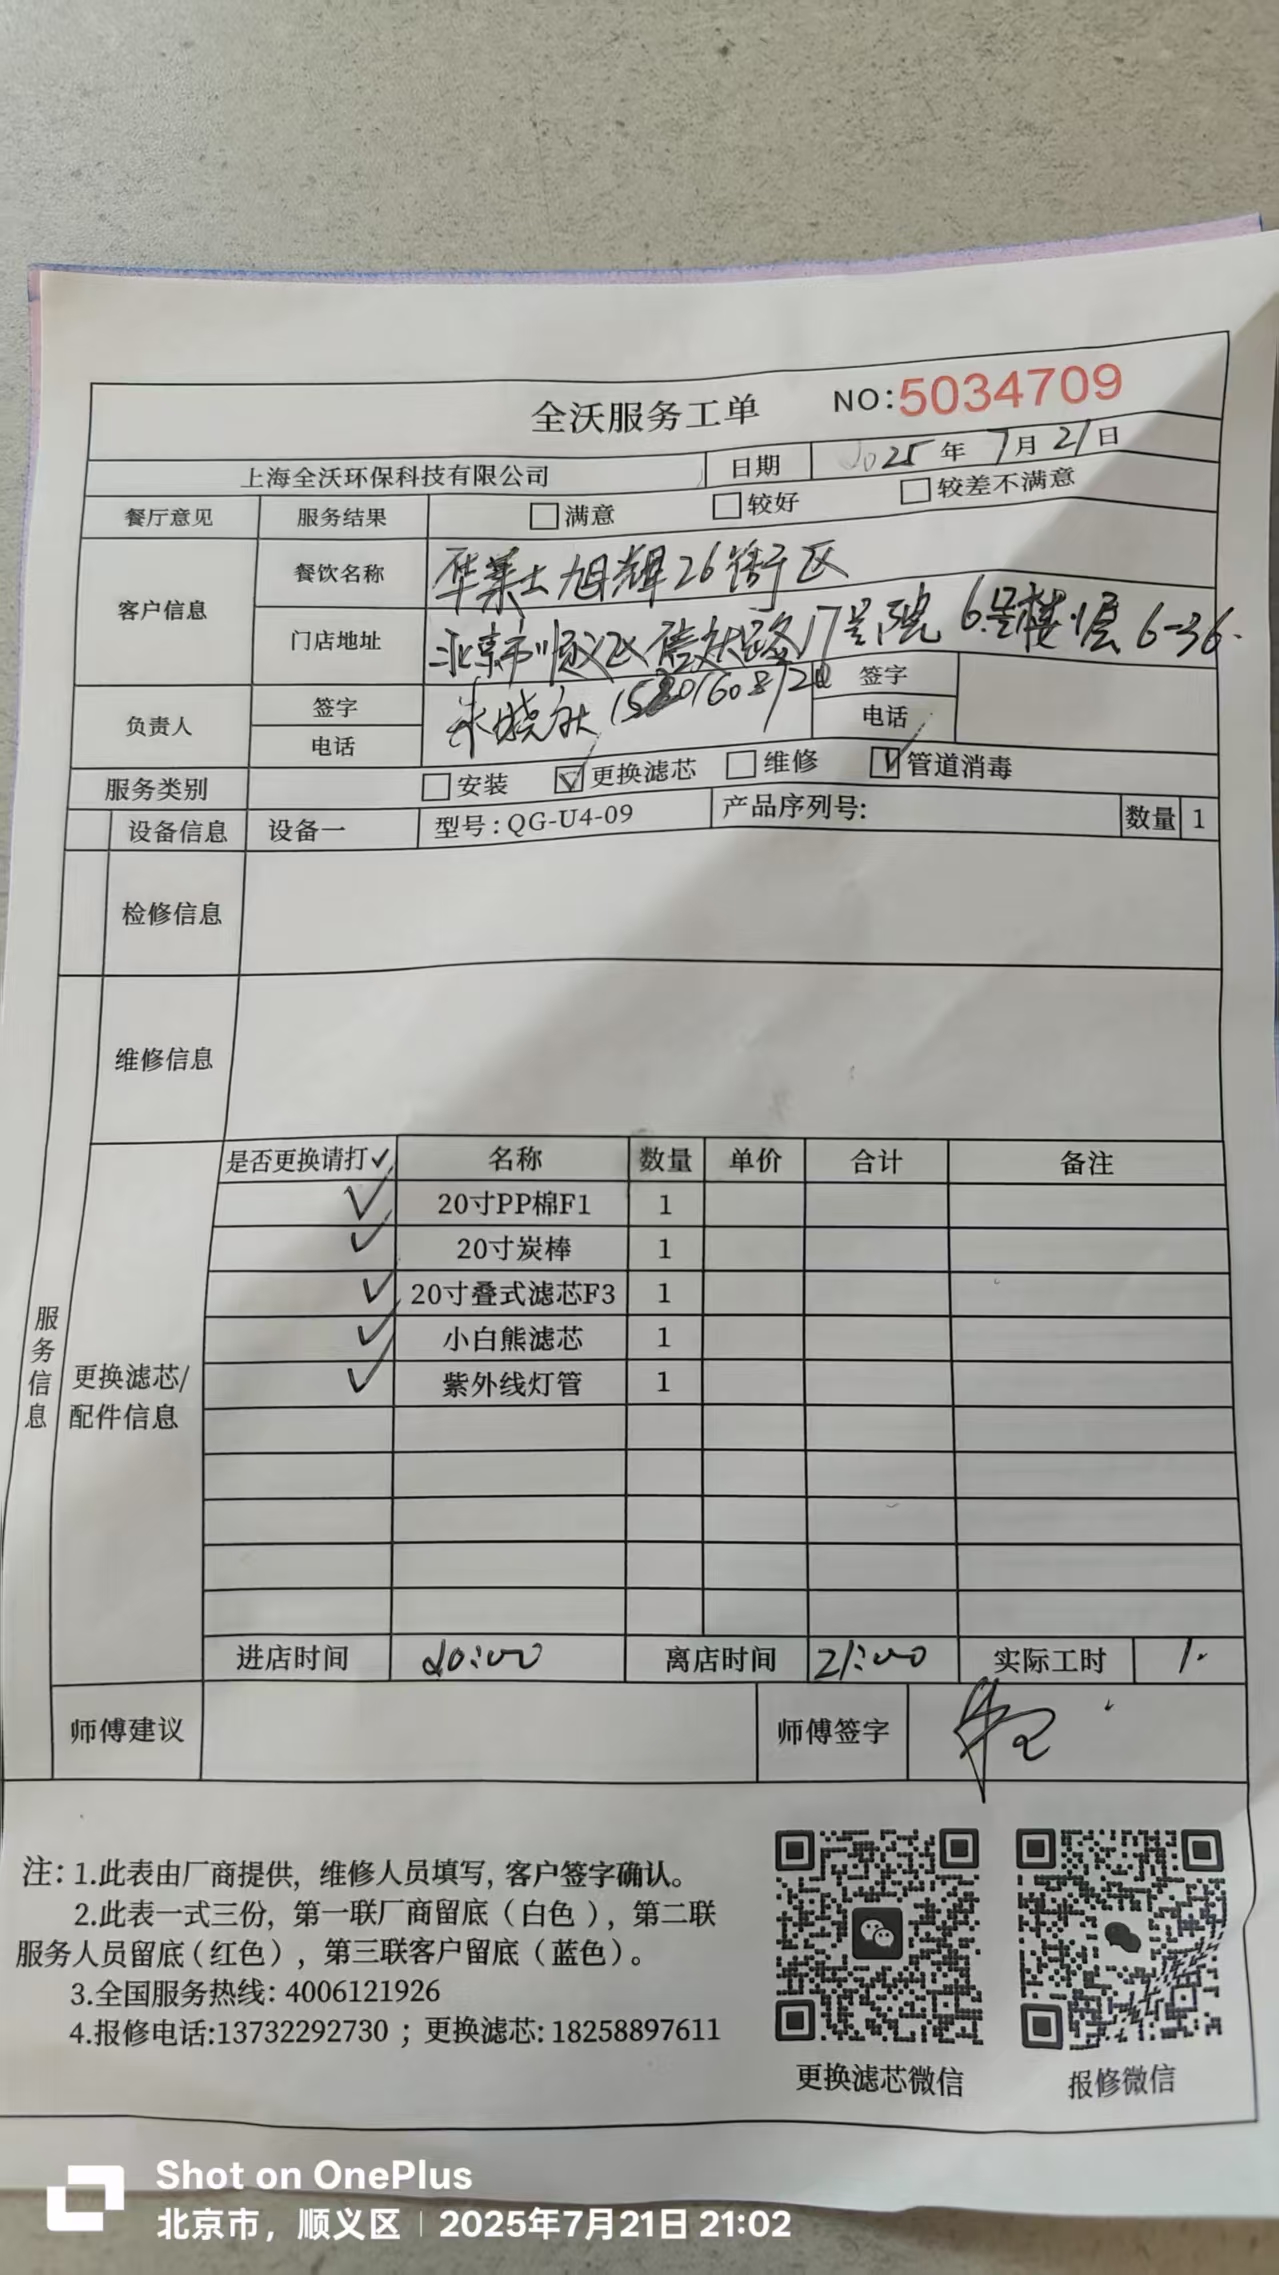 全沃服务工单 NO:5034709
上海全沃环保科技有限公司 日期 2025年7月21日
餐厅意见 服务结果 □满意 □较好 □较差不满意
客户信息 餐饮名称 华莱士旭辉26街区
门店地址 北京市顺义区信欣路17号院6号楼1层6-36.
负责人 签字 签字
电话 电话
服务类别 □安装 ☑更换滤芯 □维修 ☑管道消毒
设备信息 设备一 型号:QG-U4-09 产品序列号: 数量 1
检修信息
维修信息
服务信息
更换滤芯/
配件信息
是否更换请打✓ 名称 数量 单价 合计 备注
✓ 20寸PP棉F1 1
✓ 20寸炭棒 1
✓ 20寸叠式滤芯F3 1
✓ 小白熊滤芯 1
✓ 紫外线灯管 1
进店时间 20:00 离店时间 21:00 实际工时 1.
师傅建议 师傅签字
注:1.此表由厂商提供,维修人员填写,客户签字确认。
2.此表一式三份,第一联厂商留底(白色),第二联
服务人员留底(红色),第三联客户留底(蓝色)。
3.全国服务热线:4006121926
4.报修电话:13732292730;更换滤芯:18258897611
更换滤芯微信 报修微信
Shot on OnePlus
北京市,顺义区 | 2025年7月21日 21:02